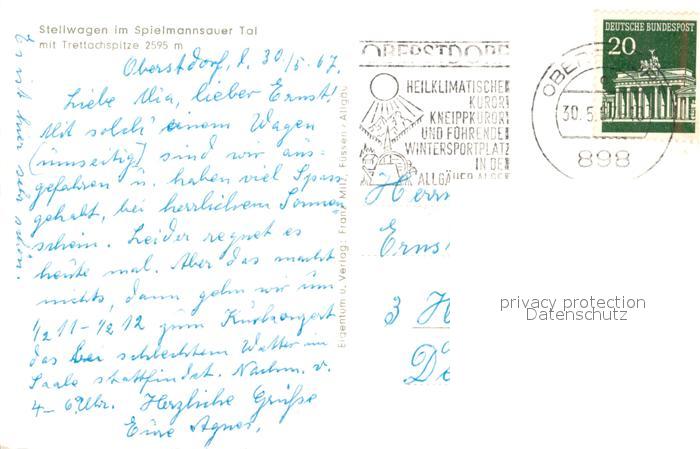 Stellwagen im Spielmannsauer Tal
mit Trettachspitze 2595 m
Oberstdorf, d. 30/5.67.
Liebe Mia, lieber Ernst!
Mit solch' einem Wagen
(umseitig) sind wir aus-
gefahren u. haben viel Spass
gehabt, bei herrlichem Sonnen-
schein. Leider regnet es
heute mal. Aber das macht
nichts, dann gehn wir um
1/2 11 - 1/2 12 zum Kurkonzert
das bei schlechtem Wetter im
Saale stattfindet. Nachm. v.
4-6 Uhr. Herzliche Grüße
Eure Agnes.
Es ist hier sehr schön.
Eigentum u. Verlag: Franz Milz, Füssen - Allgäu
OBERSTDORF
HEILKLIMATISCHER
KURORT
KNEIPPKURORT
UND FÜHRENDER
WINTERSPORTPLATZ
IN DEN
ALLGÄUER ALPEN
30.5.
898
DEUTSCHE BUNDESPOST
20
Herrn
Erns
3 H
privacy protection
Datenschutz